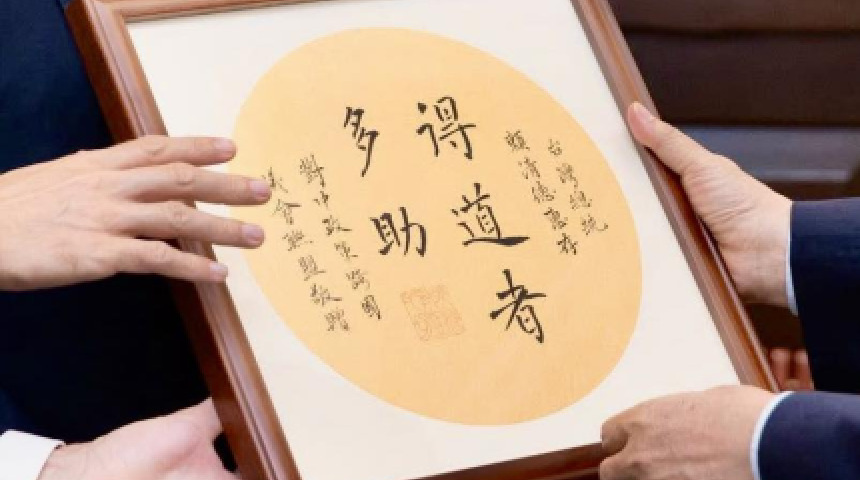 台灣總統
賴清德惠存
得道者
多助
對中政策跨國
議會聯盟敬贈